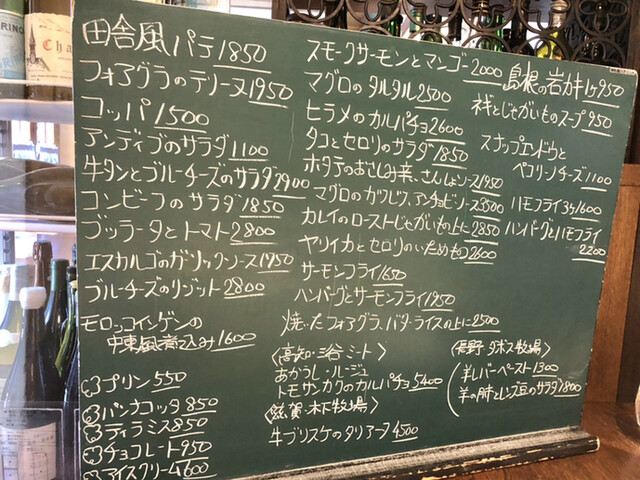 田舎風パテ 1850
フォアグラのテリーヌ 1950
コッパ 1500
アンディブのサラダ 1100
牛タンとブルーチーズのサラダ 2900
コンビーフのサラダ 1850
ブッラータとトマト 2800
エスカルゴのガーリックソース 1950
ブルーチーズのリゾット 2800
モロッコインゲンの
中東風煮込み 1600
プリン 550
パンナコッタ 850
ティラミス 850
チョコレート 950
アイスクリーム 600
スモークサーモンとマンゴー 2000
マグロのタルタル 2500
ヒラメのカルパチョ 2600
タコとセロリのサラダ 1850
ホタテのおさしみ 菜、さんしょソース 1950
マグロのカツレツ、アンチョビソース 3500
カレイのローストじゃがいもの上に 2850
ヤリイカとセロリのいためもの 2600
サーモンフライ 1650
ハンバーグとサーモンフライ 1950
焼いたフォアグラ、バターライスの上に 2500
〈高知・三谷ミート〉
あかうし・ルージュ
トモサンカクのカルパチョ 5400
〈滋賀・木下牧場〉
牛ブリスケのタリアータ 4500
島根の岩カキ 1ヶ 950
じゃがいものスープ 950
スナップエンドウと
ペコリーノチーズ 1100
ハモフライ 1600
ハンバーグとハモフライ
2200
〈長野 タボス牧場〉
羊レバーペースト 1300
羊の肺とレンズ豆のサラダ 1800